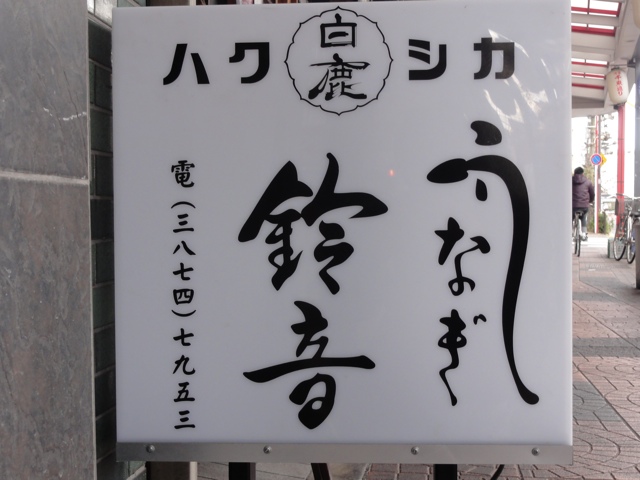 ハクシカ
白鹿
うなぎ
鈴音
電(三八七四)七九五三